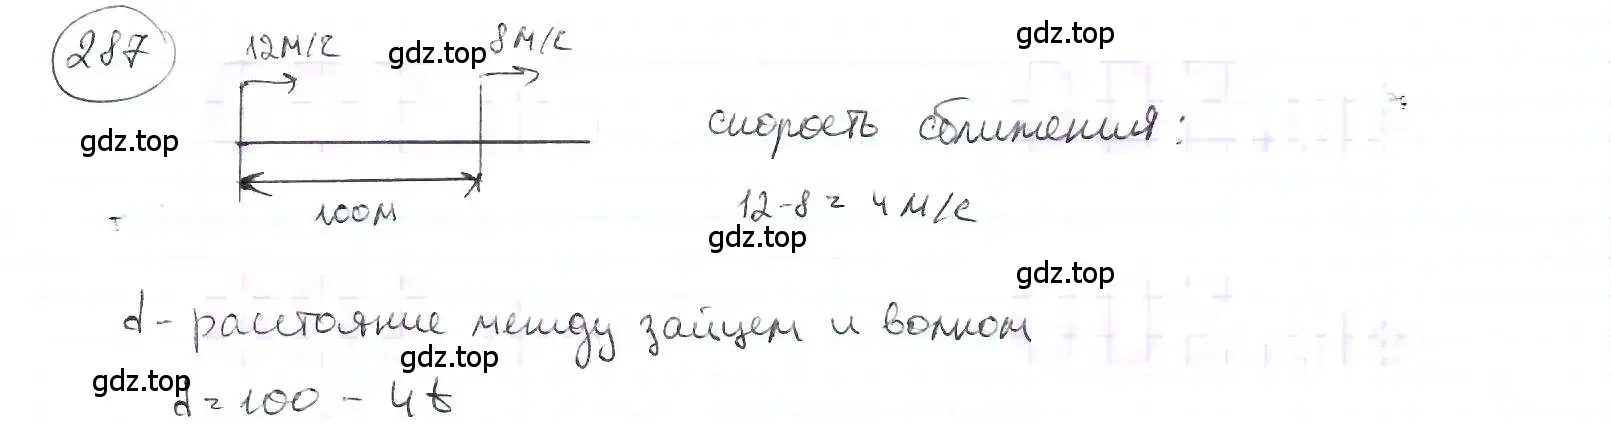 287
12м/с gdz.top 8м/с
gdz.top
gdz.top
скорость сближения:
100м
12-8 = 4 м/с
gdz.top
gdz.top
d - расстояние между зайцем и волком
gdz.top
gdz.top
d = 100 - 4t